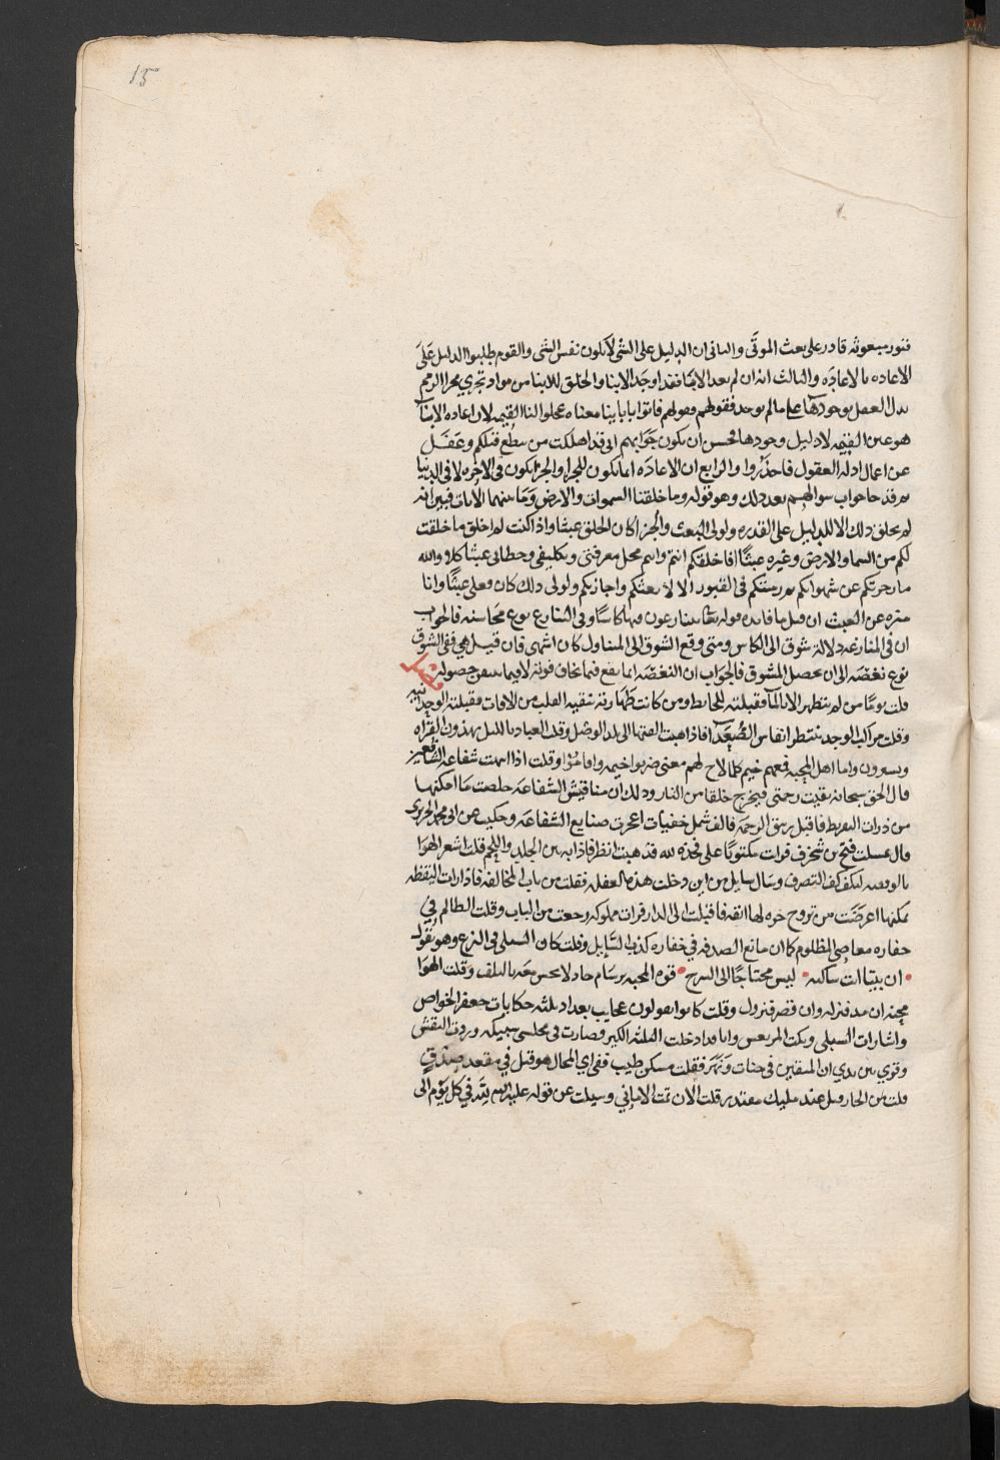 15
فنور سعوثه قادر على بعث الموتى والثانى ان الدليل على الشى لا يكون نفس الشى والقوم طلبوا الدليل على
الاعاده بالاعاده والثالث انه ان لم يعد الابا فقد اوجد الابنا والخلق للابنا من مواد تجرى مجرا الرمم
يدل العقل بوجودها على مالم يوجد فقولهم فاتوا بابائنا معناه عجلوا لنا القيمه لان اعاده الابا
هو عين القيمه لا دليل وجودها فحسن ان يكون جوابهم انى قد اهلكت من قبلكم وغفل
عن اعمال ادله العقول فاحذروا والرابع ان الاعاده انما تكون للجزا والجزا يكون فى الاخره لا فى الدنيا
ثم قد جا جواب سوالهم بعد ذلك وهو قوله وما خلقنا السموات والارض وما بينهما الايات فبين انه
لم يخلق ذلك الا للدليل على القدره ولولى البعث والجزا كان الخلق عبثا واذا كنت لم اخلق ما خلقت
لكم من السما والارض وغيره عبثا افاخلقكم انتم وانتم محل معرفتى وتكليفى وخطابى عبثا كلا والله
ما زجرتكم عن شهواتكم ثم رستكم فى القبور الا لا بعثكم واجازيكم ولولى ذلك كان فعلى عبثا وانا
منزه عن العبث ان قيل ما فايده قوله تعا يتنازعون فيها كاسا وفى التنازع نوع محاسنه فالجواب
ان فى المنازعه دلالة شوق الى الكاس ومتى وقع الشوق الى المتناول كان اشهى فان قيل هى ففى الشوق
نوع نغصه الى ان يحصل المشوق فالجواب ان النغصه انما يقع فيما يخاف فوته لا فيما يتيقن حصوله
قلت يوما من لم يتطهر الا بالما فقبلته للحايط ومن كانت طهارته تنقيه القلب من الافات فقبلته الوحدانيه
وقلت مراكب الوجد تنتظر انفاس الصعدا فاذا هبت الى بلد الوصل وقلت العباد بالليل القراه
ويسعرون واما اهل المحبه فعهم خيم كلما لاح لهم معنى ضربوا خيمه واقاموا وقلت اذا تمت شفاعه الشافعين
قال الحق سبحانه بقيت رحمتى فيخرج خلقا من النار وذلك ان مناقيش الشفاعه خلصت ما امكنها
من ذرات التفريط فاقبل زيبق الرحمه فالف شمل خفيات اعجزت صنايع الشفاعه وحكيت عن ابى محمد الحريرى
قال غسلت فتح بن شخرف فرات مكتوبا على فخذه لله فذهبت انظر فاذا به بين الجلد واللحم قلت اشعر الهوا
لكف كف التصرف وسال سايل من اين دخلت هذه الغفله فقلت من باب المخالفه فاذا رات اليقظه
تمكنها اعرضت من تزوج حره لها انفه فاقبلت الى الدار فرات مملوكه رجعت من الباب وقلت الظالم فى
خفاره معاصى المظلوم كما ان مانع الصدقه فى خفاره كذب السايل وقلت كان الشبلى فى النزع وهو يقول
• ان بيتا انت ساكنه • ليس محتاجا الى السرج • قوه المحبه برسام حاد لا يحس معه بالتلف وقلت الهوا
وقلت كانوا يقولون عجايب بغداد ثلثه حكايات جعفر الخواص
واشارات الشبلى ونكت المرتعش وانا قد ادخلت الثلثه الكير وصارت فى مجلسى سبيكه النقش
وقرى بين يدى ان المتقين فى جنات ونهر فقلت مسكن طيب ففى اى المحال هو قيل فى مقعد صدق
قلت من الجار قيل عند مليك مقتدر قلت الان تمت الامانى وسيلت عن قوله عليه السلم لله فى كل يوم الى